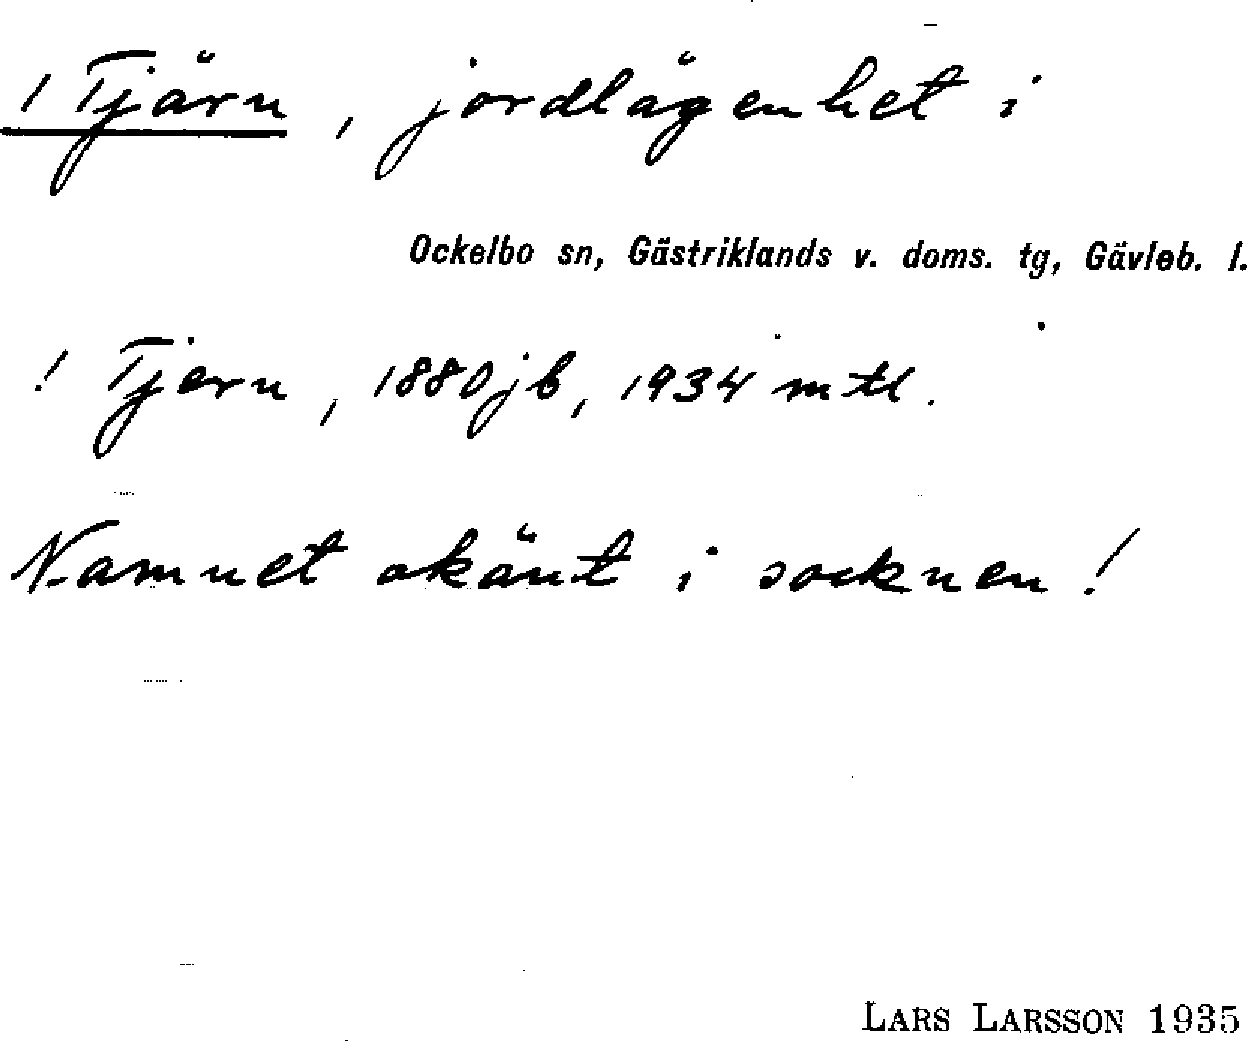 / Tjärn, jordlägenhet i
Ockelbo sn, Gästriklands v. doms. tg, Gävleb. l.
! Tjern, 1880 jb, 1934 mtl.
Namnet okänt i socknen!
LARS LARSSON 1935